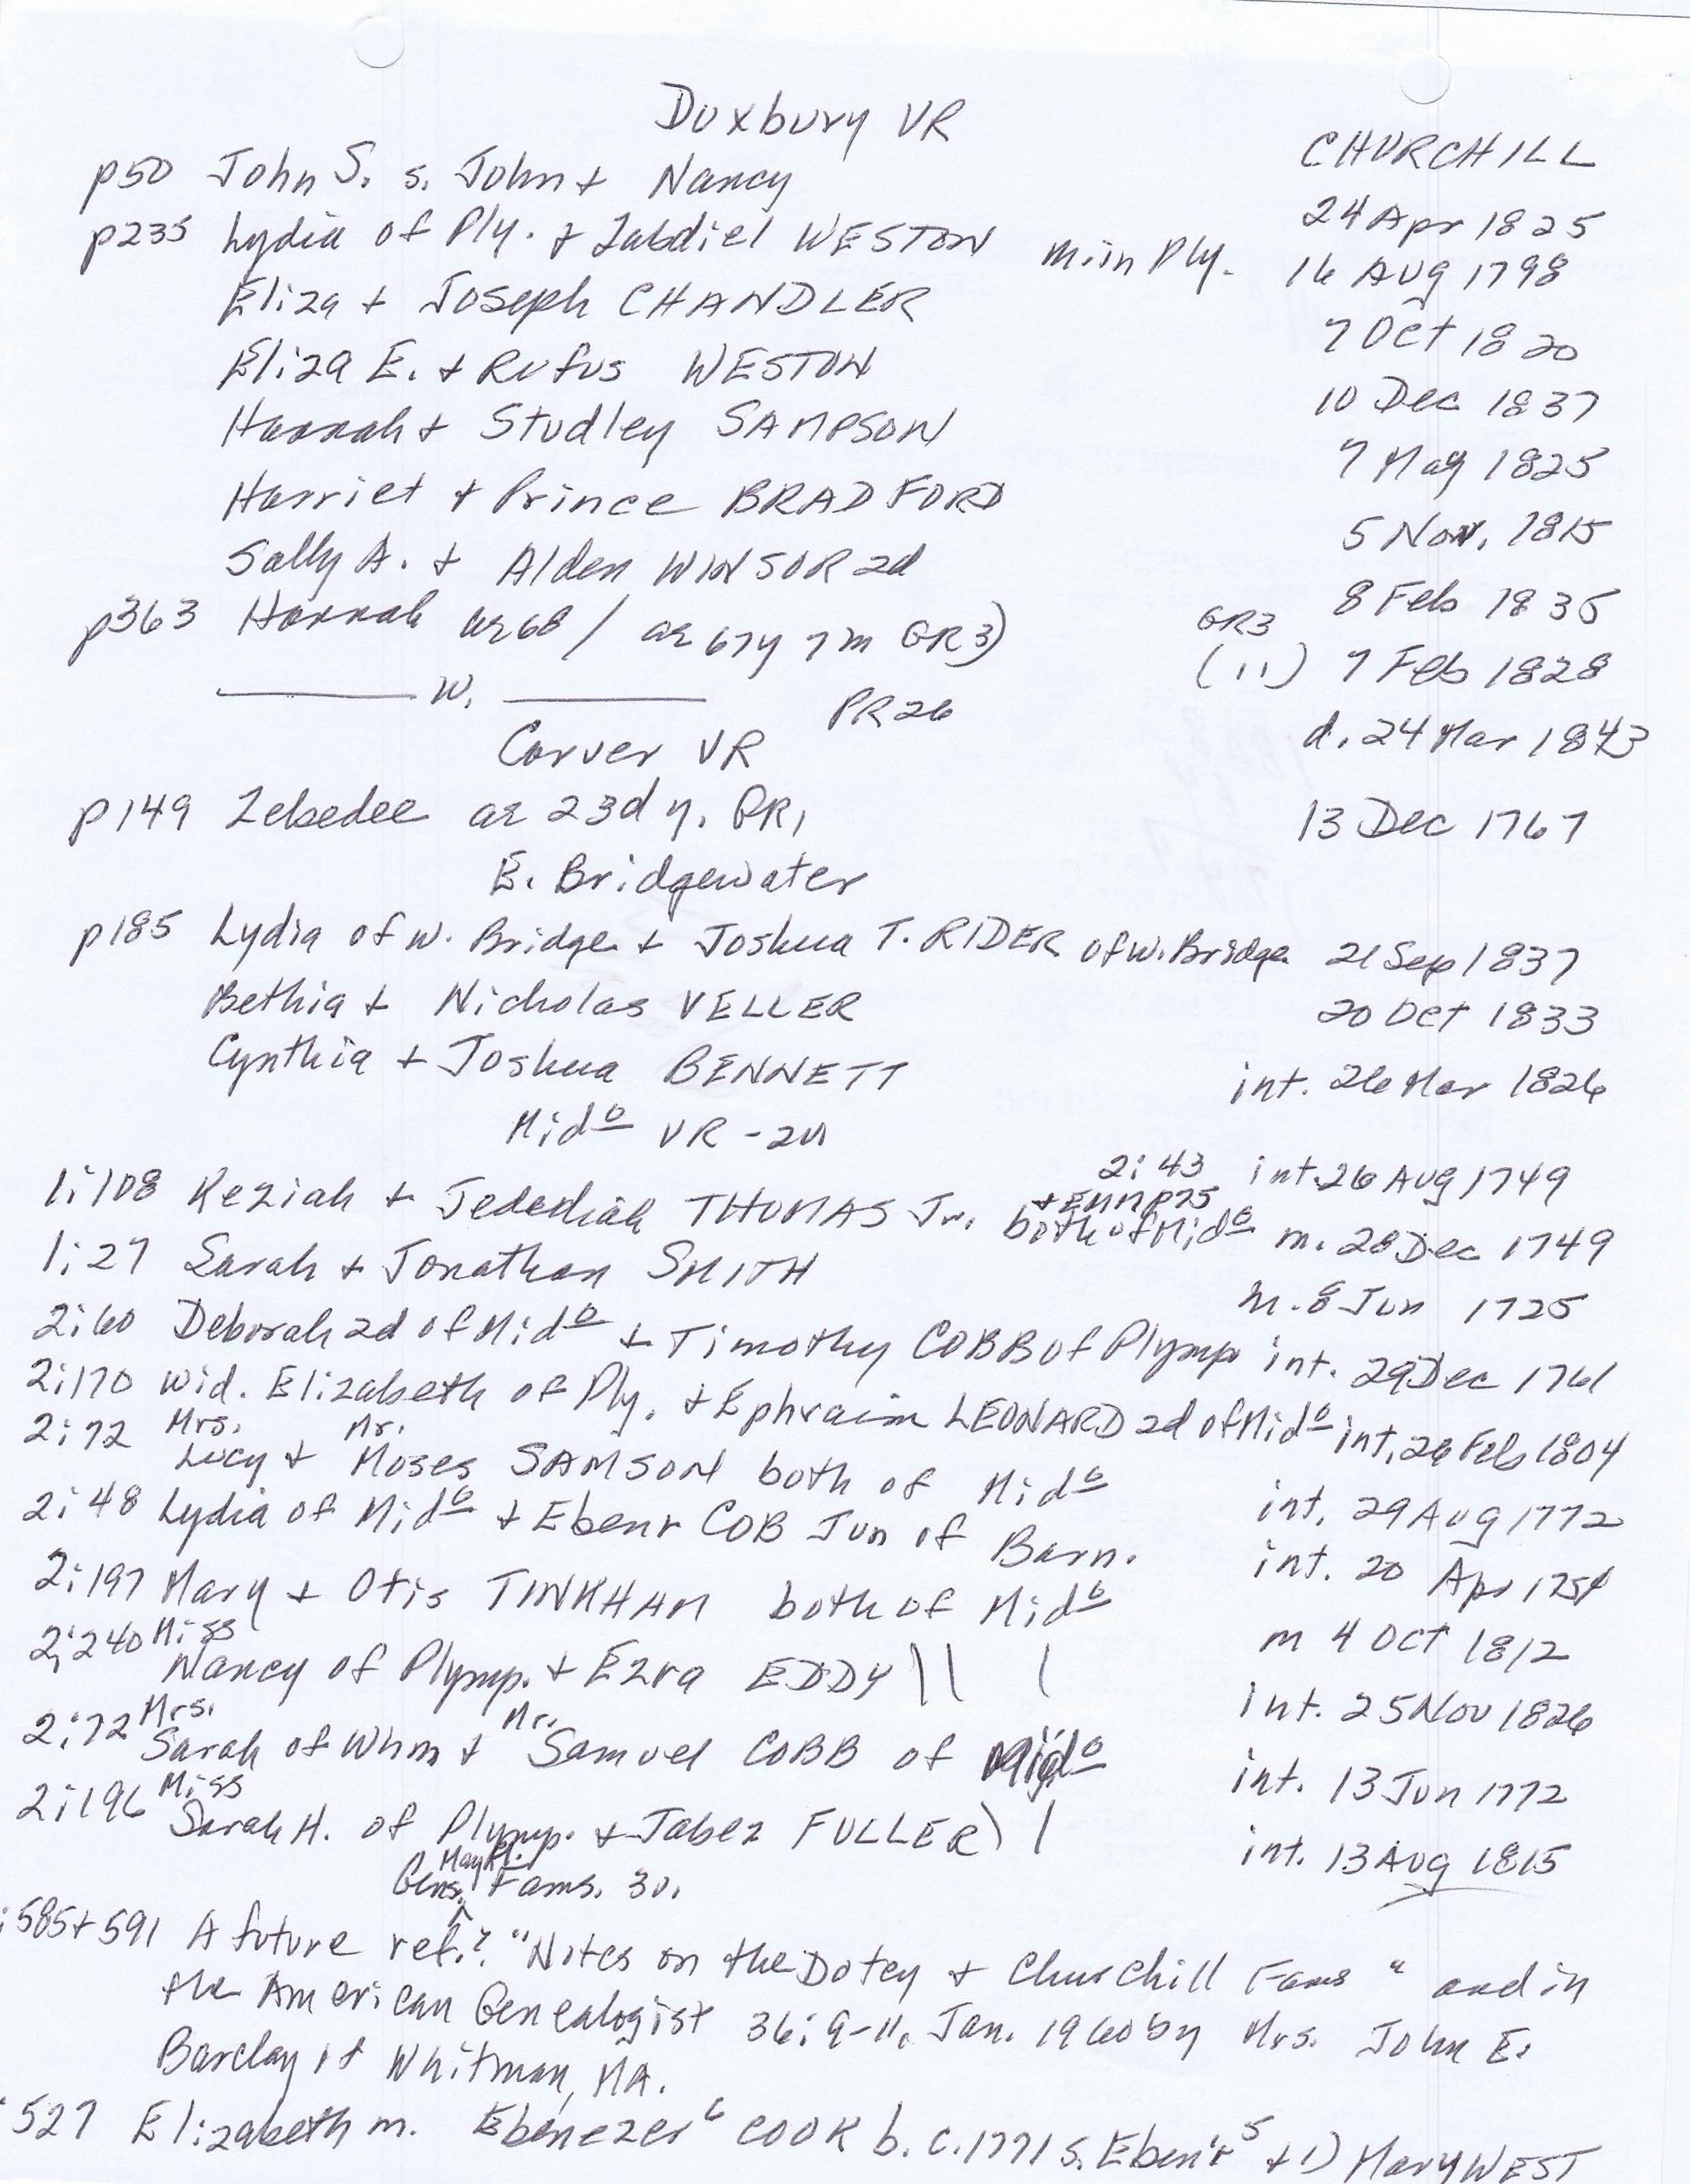 Duxbury VR
CHURCHILL
p50 John S. s. John + Nancy 24 Apr 1825
p235 Lydia of Ply. + Zabdiel WESTON m. in Ply. 16 Aug 1798
Eliza + Joseph CHANDLER 7 Oct 1820
Eliza E. + Rufus WESTON 10 Dec 1837
Hannah + Studley SAMPSON 7 May 1825
Harriet + Prince BRADFORD 5 Nov. 1815
Sally A. + Alden WINSOR 2d 8 Feb 1835
p363 Hannah ae 68 / ae 67y 7m GR3) GR3 (11) 7 Feb 1828
——— W. ——— PR26 d. 24 Mar 1843
Carver VR
p149 Zebedee ae 23d y. GR1 13 Dec 1767
E. Bridgewater
p185 Lydia of W. Bridge + Joshua T. RIDER of W. Bridge 21 Sep 1837
Bethia + Nicholas VELLER 20 Oct 1833
Cynthia + Joshua BENNETT int. 26 Mar 1826
Mido VR -
2:43 int. 26 Aug 1749
+ EMMP25
1:108 Keziah + Jedediah THOMAS Jr. both of Mido m. 28 Dec 1749
1:27 Sarah + Jonathan SMITH m. 8 Jun 1725
2:60 Deborah 2d of Mido + Timothy COBB of Plymp int. 29 Dec 1761
2:170 wid. Elizabeth of Ply. + Ephraim LEONARD 2d of Mido int. 26 Feb 1804
2:72 Mrs. Lucy + Mr. Moses SAMSON both of Mido int. 29 Aug 1772
2:48 Lydia of Mido + Ebenr COB Jun of Barn. int. 20 Apr 1754
2:197 Mary + Otis TINKHAM both of Mido m 4 Oct 1812
2:240 Miss Nancy of Plymp. + Ezra EDDY \\ \ int. 25 Nov 1826
2:72 Mrs. Sarah of Whm + Mr. Samuel COBB of Mido int. 13 Jun 1772
2:196 Miss Sarah H. of Plymp. + Jabez FULLER \ \ int. 13 Aug 1815
Gens. Mayfl. Fams. 30.
:585+591 A future ref.? "Notes on the Dotey + Churchill Fams" and in
the American Genealogist 36:9-11, Jan. 1960 by Mrs. John E.
Barclay of Whitman, MA.
527 Elizabeth m. Ebenezer6 COOK b. c.1771 s. Eben'r5 + 1) Mary WEST